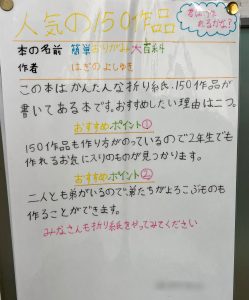 人気の150作品
本の名前 簡単おりがみ大百科
作者 はぎのよしゆき
この本はかんたんな折り紙、150作品が
書いてある本です。おすすめしたい理由は二つ。
おすすめポイント①
150作品も作り方がのっているので2年生でも
作れるお気に入りのものが見つかります。
おすすめポイント②
二人とも弟がいるので、弟たちがよろこぶものも
作ることができます。
みなさんも折り紙をやってみてください